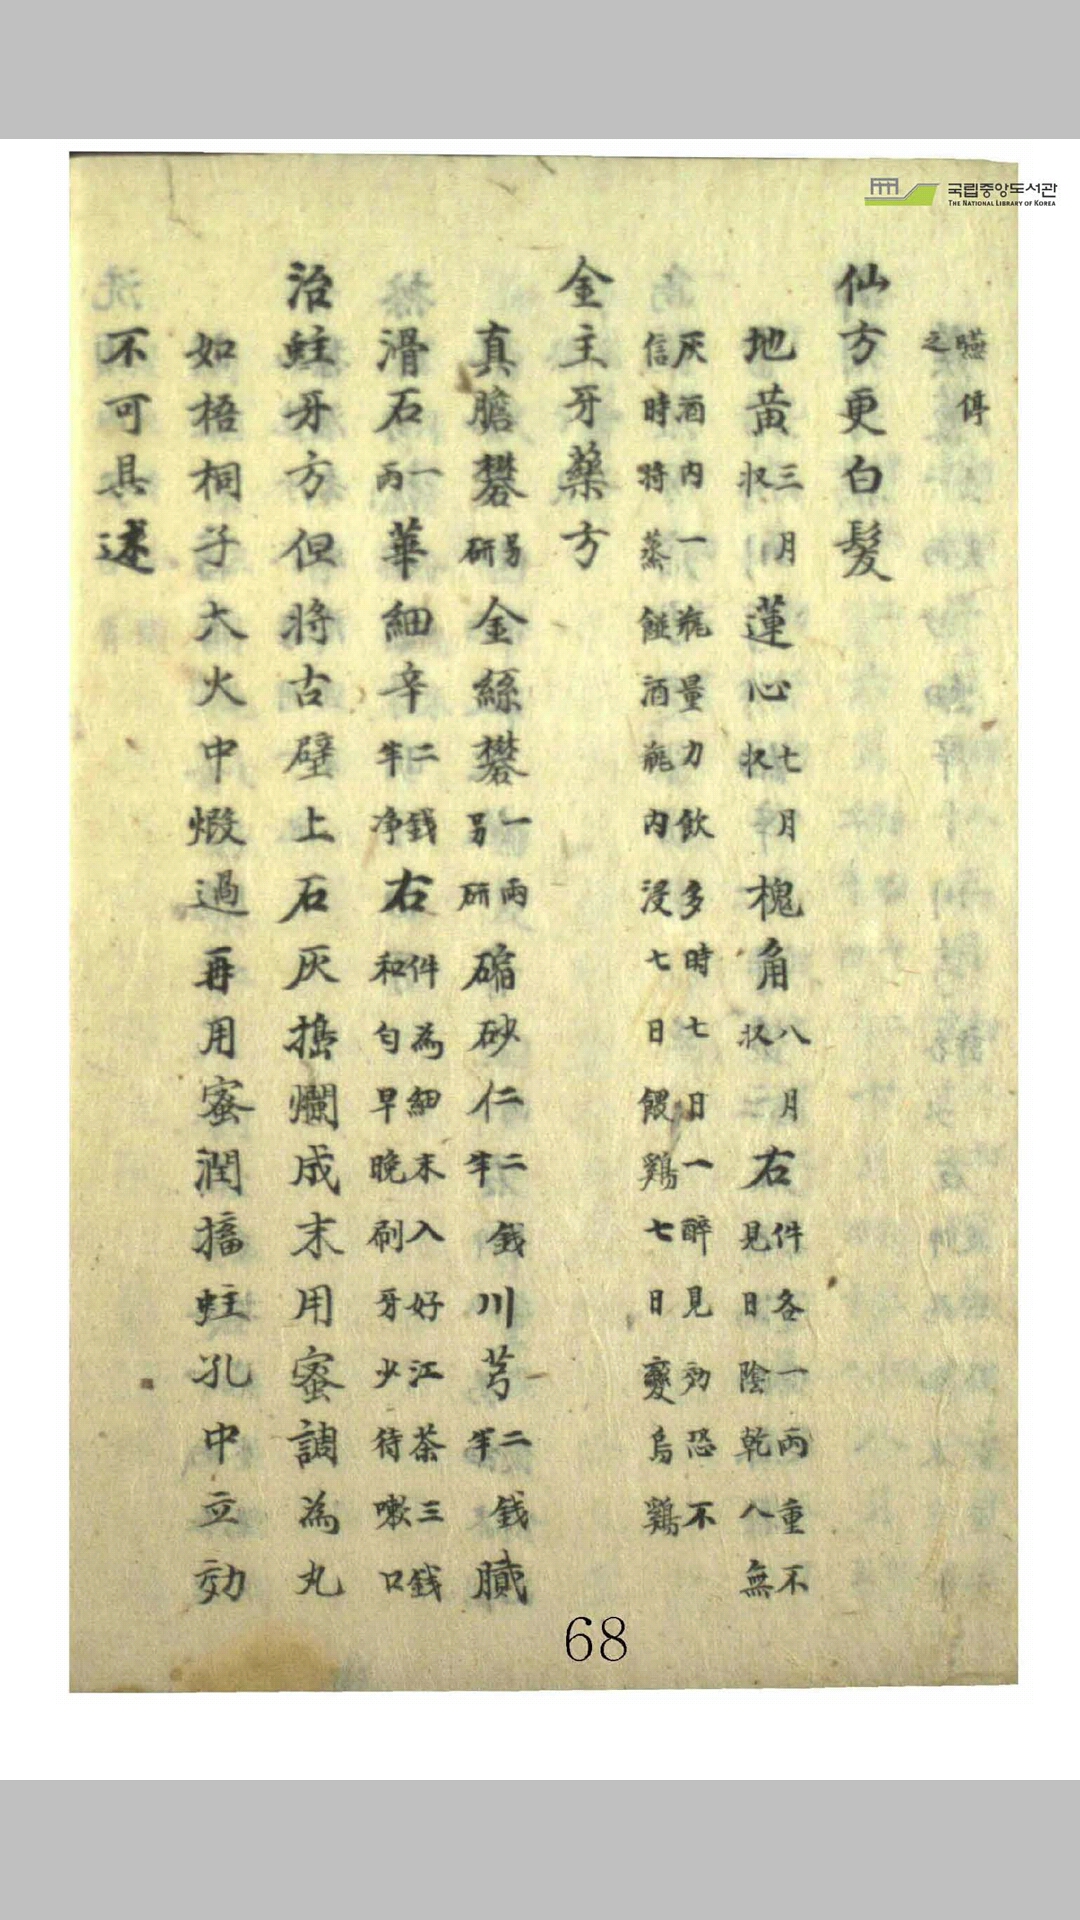 国립중앙도서관
THE NATIONAL LIBRARY OF KOREA
停之
仙方更白髮
地黃三月収蓮心七月収槐角八月収右件各一兩重不見日陰乾八無
灰酒內一瓶量力飲多時七日一醉見効恐不
信時将蒸酒瓶內浸七日餵鷄七日變烏鷄
金主牙藥方
真膽礬另研金絲礬一兩另研砂仁二錢半川芎二錢半膩
滑石一兩華細辛二錢半净右件為細末入好江茶三錢和匀早晚刷牙少待嗽口
治蛀牙方但将古壁上石灰搗爛成末用蜜調為丸
如梧桐子大火中煅過再用蜜潤蛀孔中立効
不可具述
68